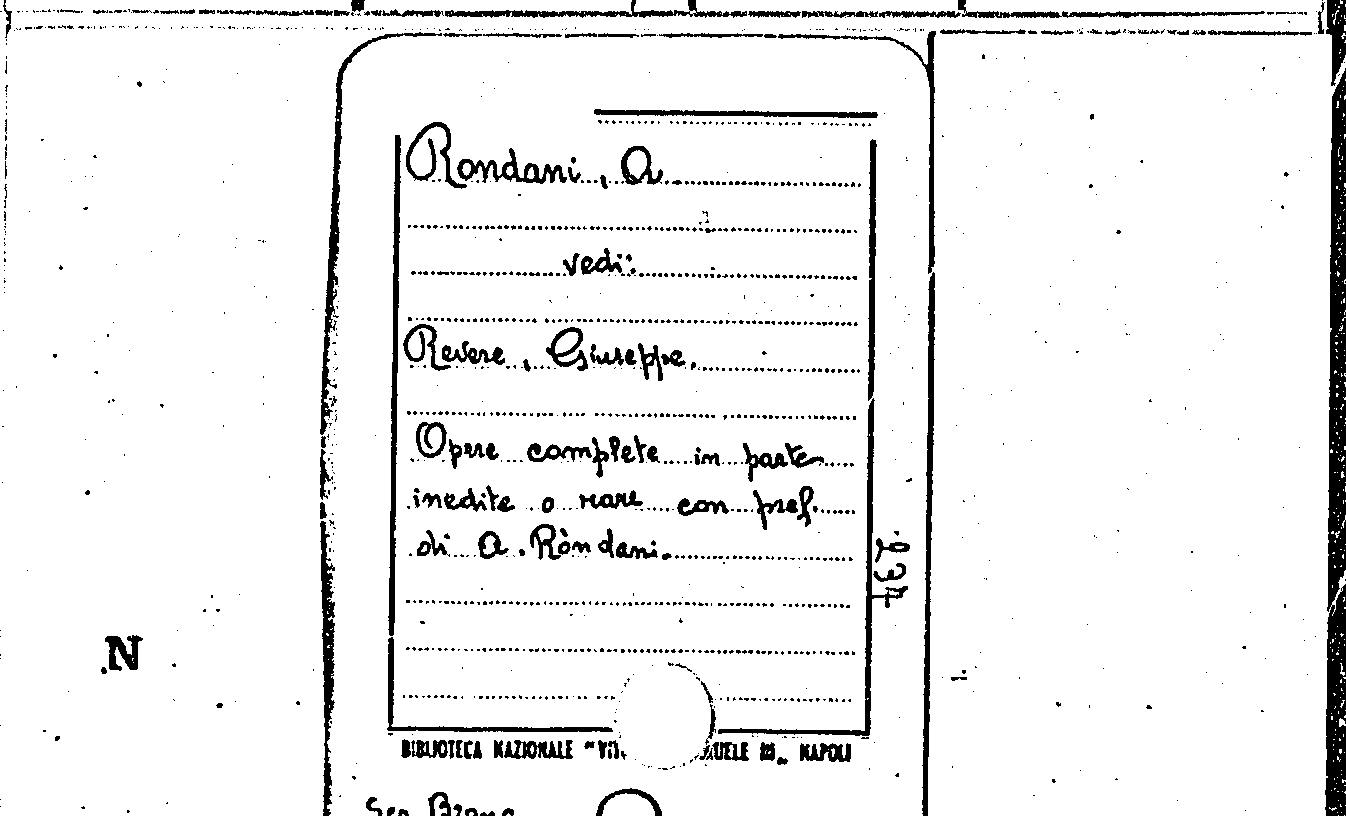 Rondani, A.
vedi:
Revere, Giuseppe.
Opere complete in parte
inedite o rare con pref.
di A. Rondani.
234
N
BIBLIOTECA NAZIONALE "VIT UELE III„ NAPOLI